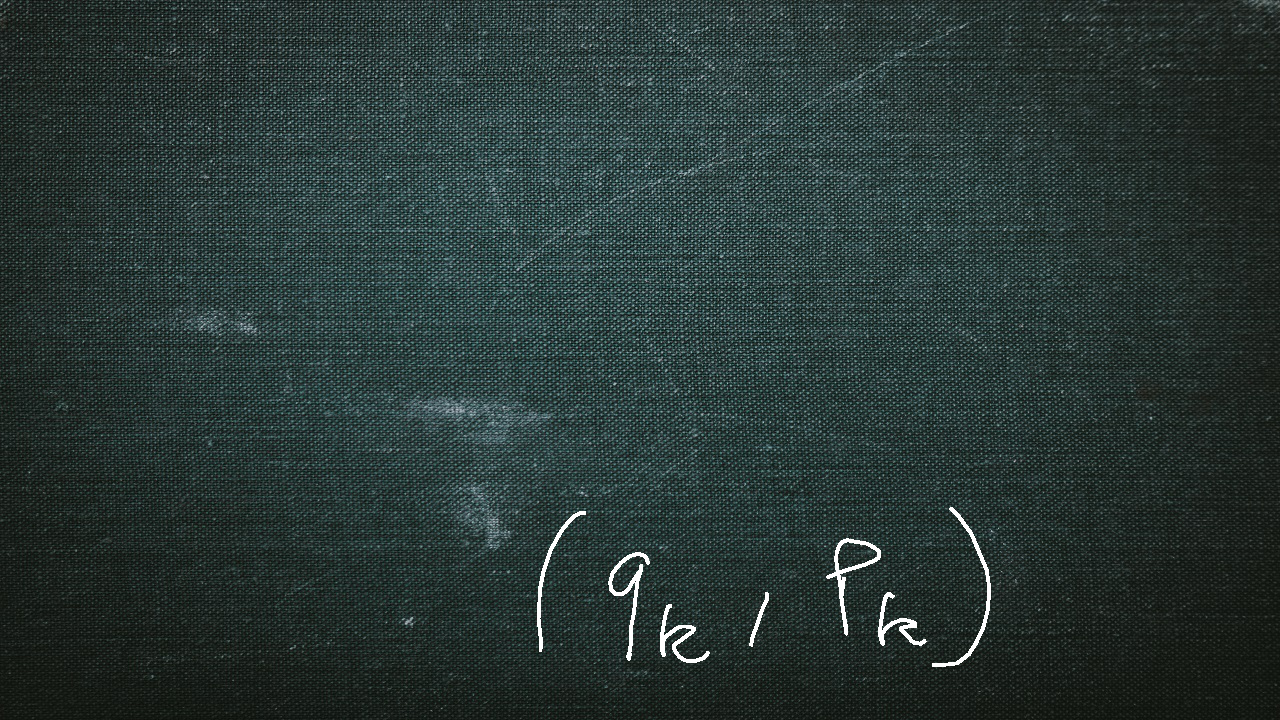 (q_k, p_k)